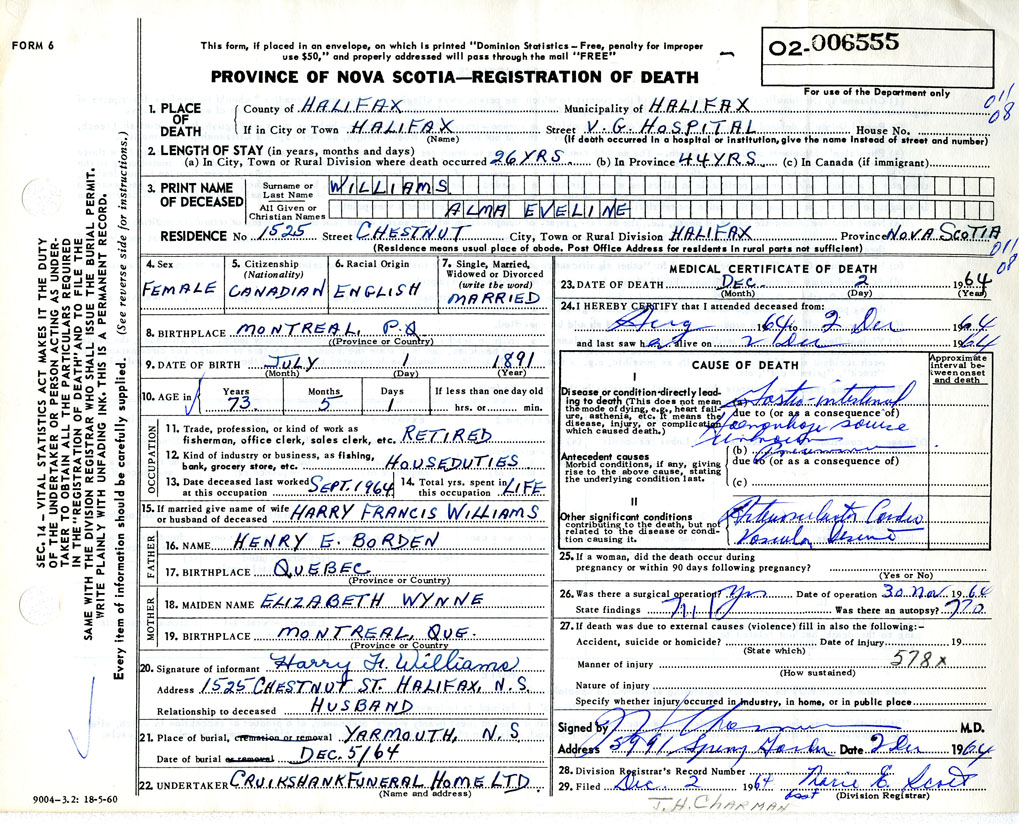 FORM 6
This form, if placed in an envelope, on which is printed "Dominion Statistics – Free, penalty for improper
use $50," and properly addressed will pass through the mail "FREE"
PROVINCE OF NOVA SCOTIA—REGISTRATION OF DEATH
02-006555
For use of the Department only
011
08
1. PLACE OF DEATH
County of HALIFAX Municipality of HALIFAX
If in City or Town HALIFAX Street V. G. HOSPITAL House No.
(Name) (If death occurred in a hospital or institution, give the name instead of street and number)
2. LENGTH OF STAY (in years, months and days)
(a) In City, Town or Rural Division where death occurred 26 YRS. (b) In Province 44 YRS. (c) In Canada (if immigrant)
3. PRINT NAME OF DECEASED
Surname or Last Name WILLIAMS
All Given or Christian Names ALMA EVELINE
RESIDENCE No 1525 Street CHESTNUT City, Town or Rural Division HALIFAX Province NOVA SCOTIA
(Residence means usual place of abode. Post Office Address for residents in rural parts not sufficient)
011
08
4. Sex FEMALE
5. Citizenship (Nationality) CANADIAN
6. Racial Origin ENGLISH
7. Single, Married, Widowed or Divorced (write the word) MARRIED
8. BIRTHPLACE MONTREAL, P.Q
(Province or Country)
9. DATE OF BIRTH JULY 1 1891
(Month) (Day) (Year)
10. AGE in Years 73 Months 5 Days 1 If less than one day old hrs. or min.
OCCUPATION
11. Trade, profession, or kind of work as fisherman, office clerk, sales clerk, etc. RETIRED
12. Kind of industry or business, as fishing, bank, grocery store, etc. HOUSEDUTIES
13. Date deceased last worked at this occupation SEPT. 1964
14. Total yrs. spent in this occupation LIFE
15. If married give name of wife or husband of deceased HARRY FRANCIS WILLIAMS
FATHER
16. NAME HENRY E. BORDEN
17. BIRTHPLACE QUEBEC
(Province or Country)
MOTHER
18. MAIDEN NAME ELIZABETH WYNNE
19. BIRTHPLACE MONTREAL, QUE.
(Province or Country)
20. Signature of informant Harry F. Williams
Address 1525 CHESTNUT ST. HALIFAX, N.S.
Relationship to deceased HUSBAND
21. Place of burial, cremation or removal YARMOUTH, N.S
Date of burial or removal DEC. 5/64
22. UNDERTAKER CRUIKSHANK FUNERAL HOME LTD.
(Name and address)
9004-3.2: 18-5-60
MEDICAL CERTIFICATE OF DEATH
23. DATE OF DEATH DEC. 2 1964
(Month) (Day) (Year)
24. I HEREBY CERTIFY that I attended deceased from:
1964 to 2 Dec 1964
and last saw h alive on 2 Dec 1964
CAUSE OF DEATH
Approximate interval between onset and death
I
Disease or condition directly leading to death (This does not mean the mode of dying, e.g., heart failure, asthenia, etc. It means the disease, injury, or complication which caused death.)
(a) Gastro-intestinal
due to (or as a consequence of)
Hemorrhage source
unknown
Antecedent causes
Morbid conditions, if any, giving rise to the above cause, stating the underlying condition last.
(b) Pneumonia
due to (or as a consequence of)
(c)
II
Other significant conditions contributing to the death, but not related to the disease or condition causing it.
Cardio
Vascular Disease
25. If a woman, did the death occur during
pregnancy or within 90 days following pregnancy?
(Yes or No)
26. Was there a surgical operation? Yes Date of operation 30 Nov. 1964
State findings Nil Was there an autopsy? no
27. If death was due to external causes (violence) fill in also the following:—
Accident, suicide or homicide? Date of injury 19
(State which)
Manner of injury 578x
(How sustained)
Nature of injury
Specify whether injury occurred in industry, in home, or in public place
Signed by Charman M.D.
Address 5991 Spring Garden Date 2 Dec 1964
28. Division Registrar's Record Number
29. Filed Dec. 2 1964 Marie E. Scott
asst (Division Registrar)
J.H. CHARMAN
SEC. 14—VITAL STATISTICS ACT MAKES IT THE DUTY
OF THE UNDERTAKER OR PERSON ACTING AS UNDER-
TAKER TO OBTAIN ALL THE PARTICULARS REQUIRED
IN THE "REGISTRATION OF DEATH" AND TO FILE THE
SAME WITH THE DIVISION REGISTRAR WHO SHALL ISSUE THE BURIAL PERMIT.
WRITE PLAINLY WITH UNFADING INK. THIS IS A PERMANENT RECORD.
Every item of information should be carefully supplied. (See reverse side for instructions.)